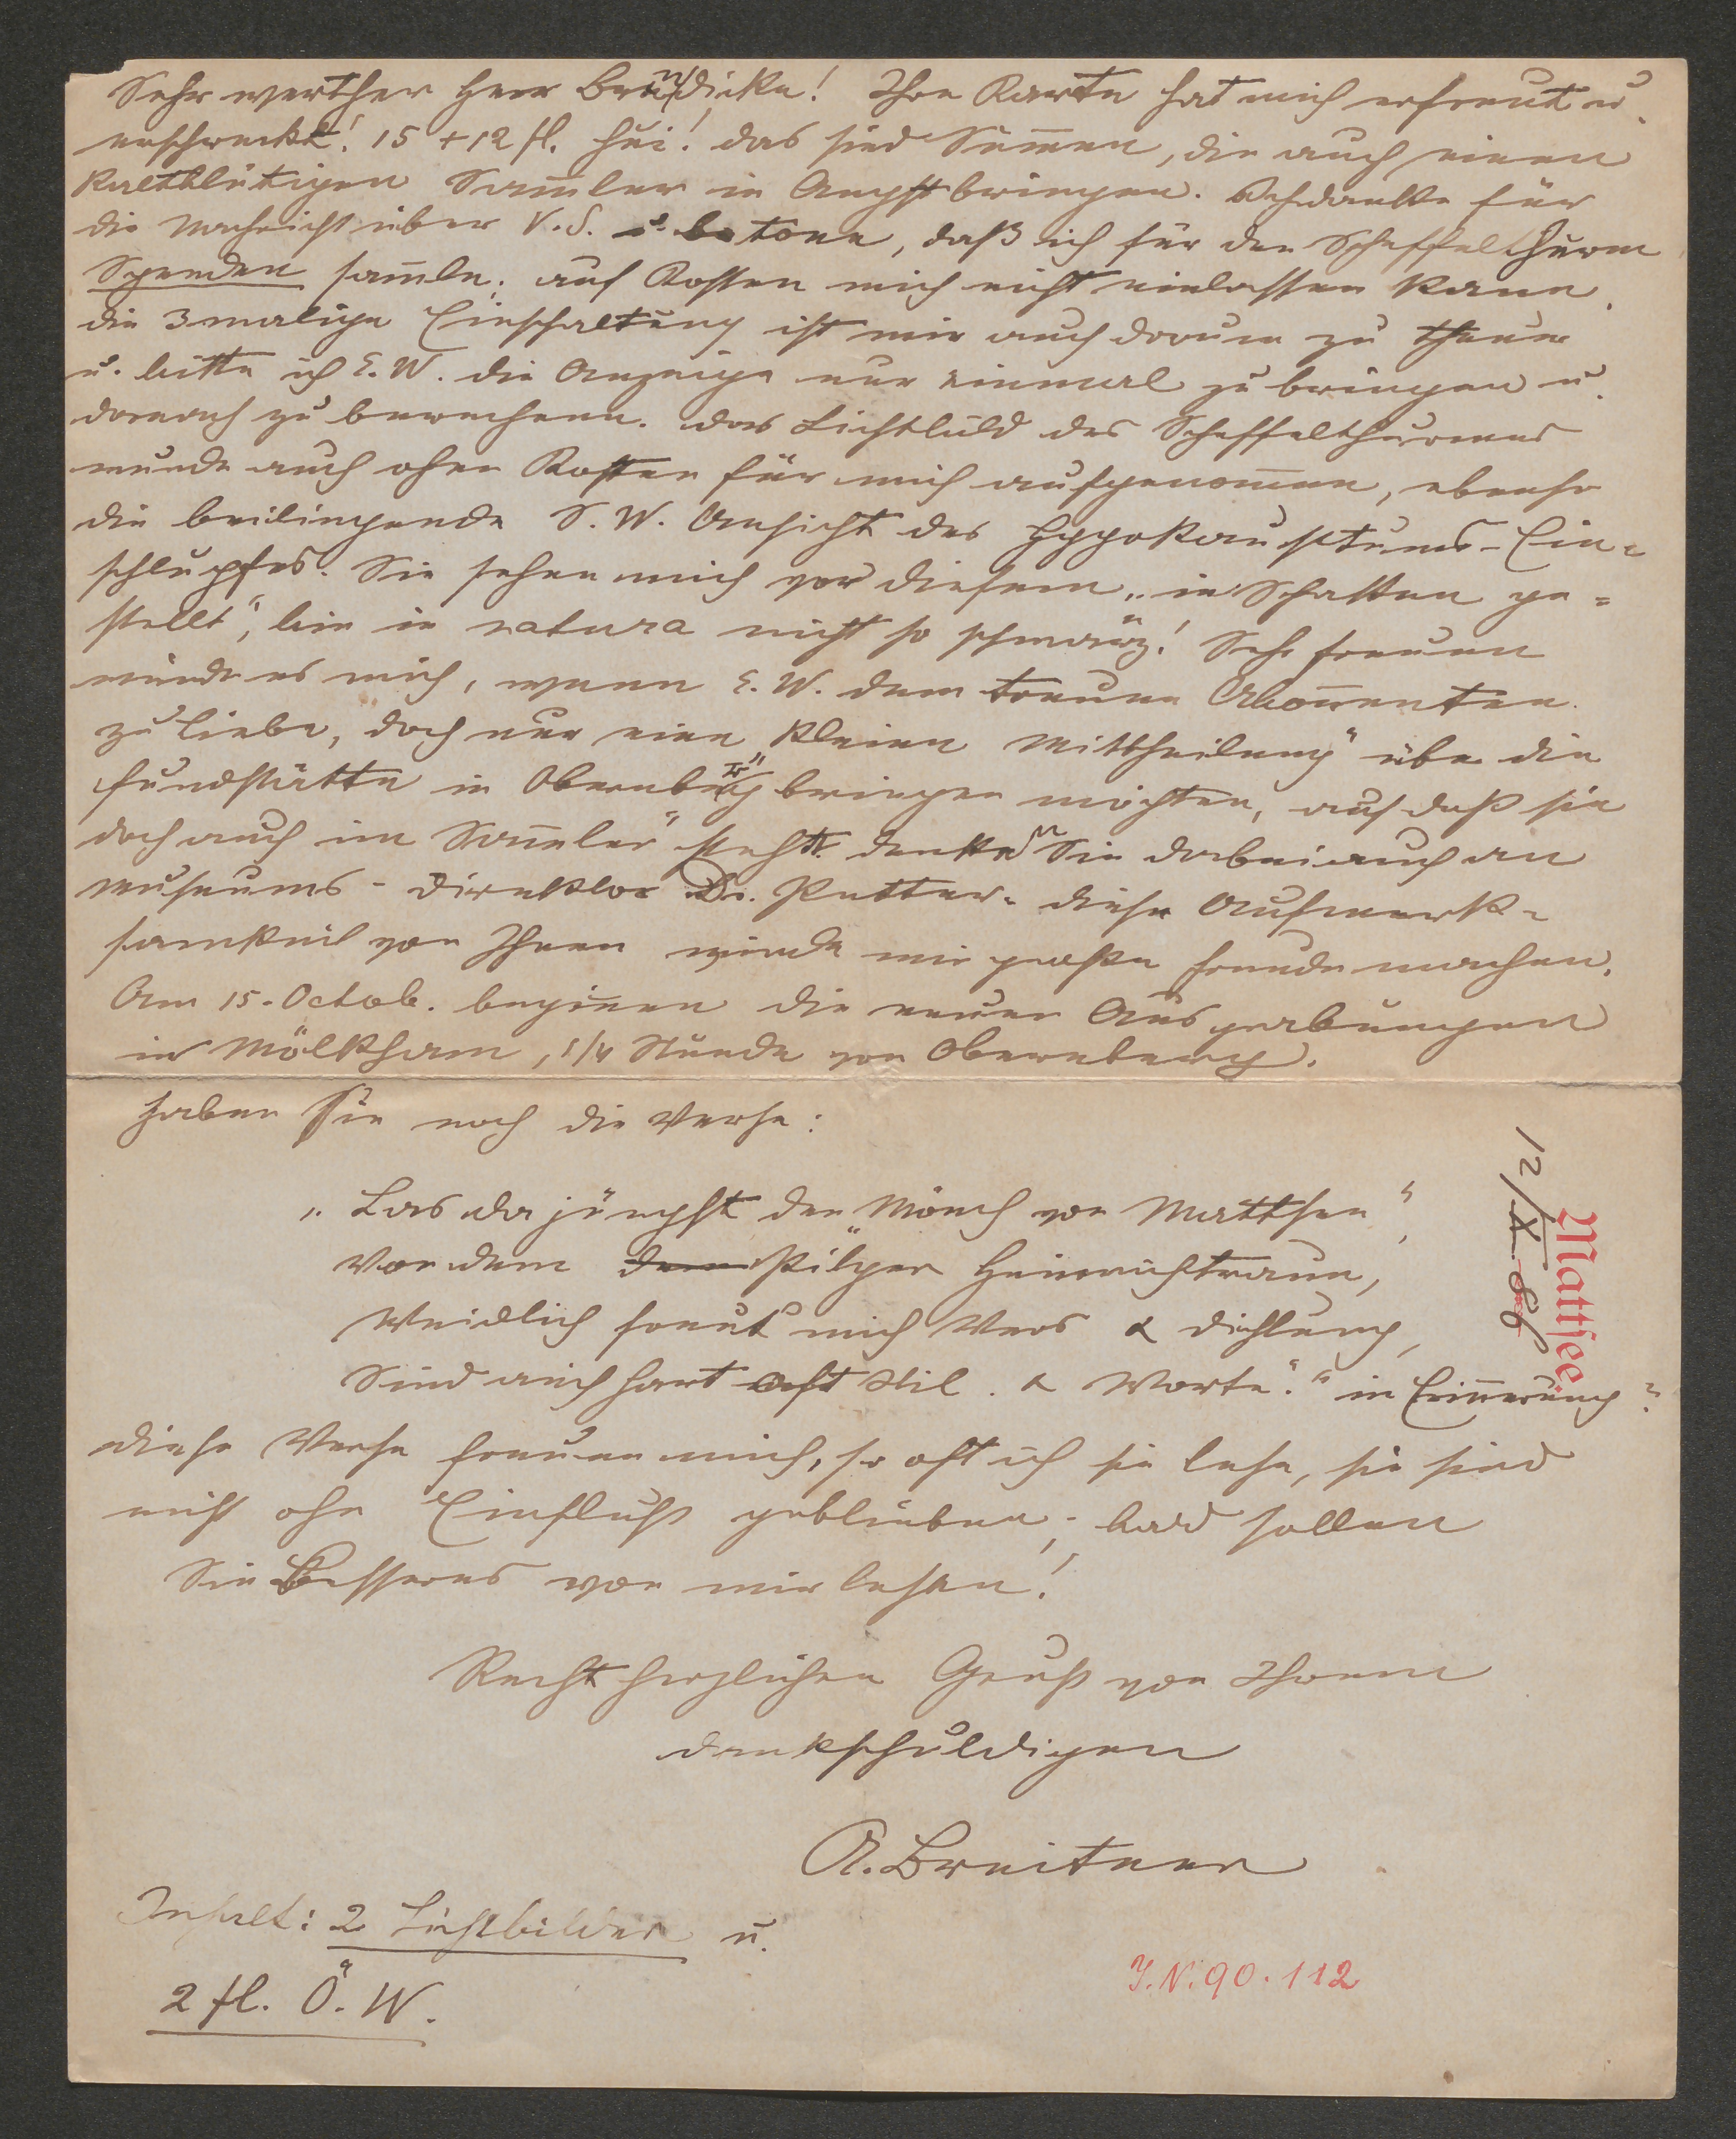 Sehr werther Herr Brendicke! Ihre Karte hat mich erfreut u.
erschreckt! 15 + 12 fl. hui! das sind Sum̄en, die auch einen
kaltblütigen Sam̄ler in Angst bringen. Ich danke für
die Nachricht über V. S. u. betone, daß ich für den Scheffelthurm
Spenden sam̄le; auf Kosten mich nicht einlassen kann.
die 3malige Einschaltung ist mir auch darum zu theuer
u. bitte ich E. W. die Anzeige nur einmal zu bringen u.
darnach zu berechnen. das Lichtbild des Scheffelthurmes
wurde auch ohne Kosten für mich aufgenom̄en, ebenso
die beiliegende S. W. Ansicht des Hypokaustums-Ein=
schlupfes. Sie sehen mich vor diesem „in Schatten ge=
stellt", bin in natura nicht so schwarz! Sehr freuen
würde es mich, wenn E. W. dem treuen Abon̄enten
zu Liebe, doch nur eine „kleine Mittheilung" über die
Fundstätte in Obernberg bringen möchten, auf daß sie
doch auch im Sam̄ler" steht. denken Sie dabei auch an
Museums-Direktor Dr. Petter. diese Aufmerk=
samkeit von Ihnen würde mir große Freude machen.
Am 15. Octob. begin̄en die neuen Ausgrabungen
in Mölkham, 1/4 Stunde von Obernberg.
Haben Sie noch die Verse:
„Las da jüngst den „Mönch von Mattsee",
Von dem dem Pilger Heinrichtraun,
Weidlich freut' mich Vers & Dichtung,
Sind auch hart oft Stil & Worte." in Erin̄erung?
diese Verse freuen mich, so oft ich sie lese, sie sind
nicht ohne Einfluß geblieben; bald sollen
Sie Besseres von mir lesen!
Recht herzlichen Gruß von Ihrem
dankschuldigen
A. Breitner
Inhalt: 2 Lichtbilder u.
2 fl. Ö. W.
Mattsee
12/X. 86
J. N. 90.112